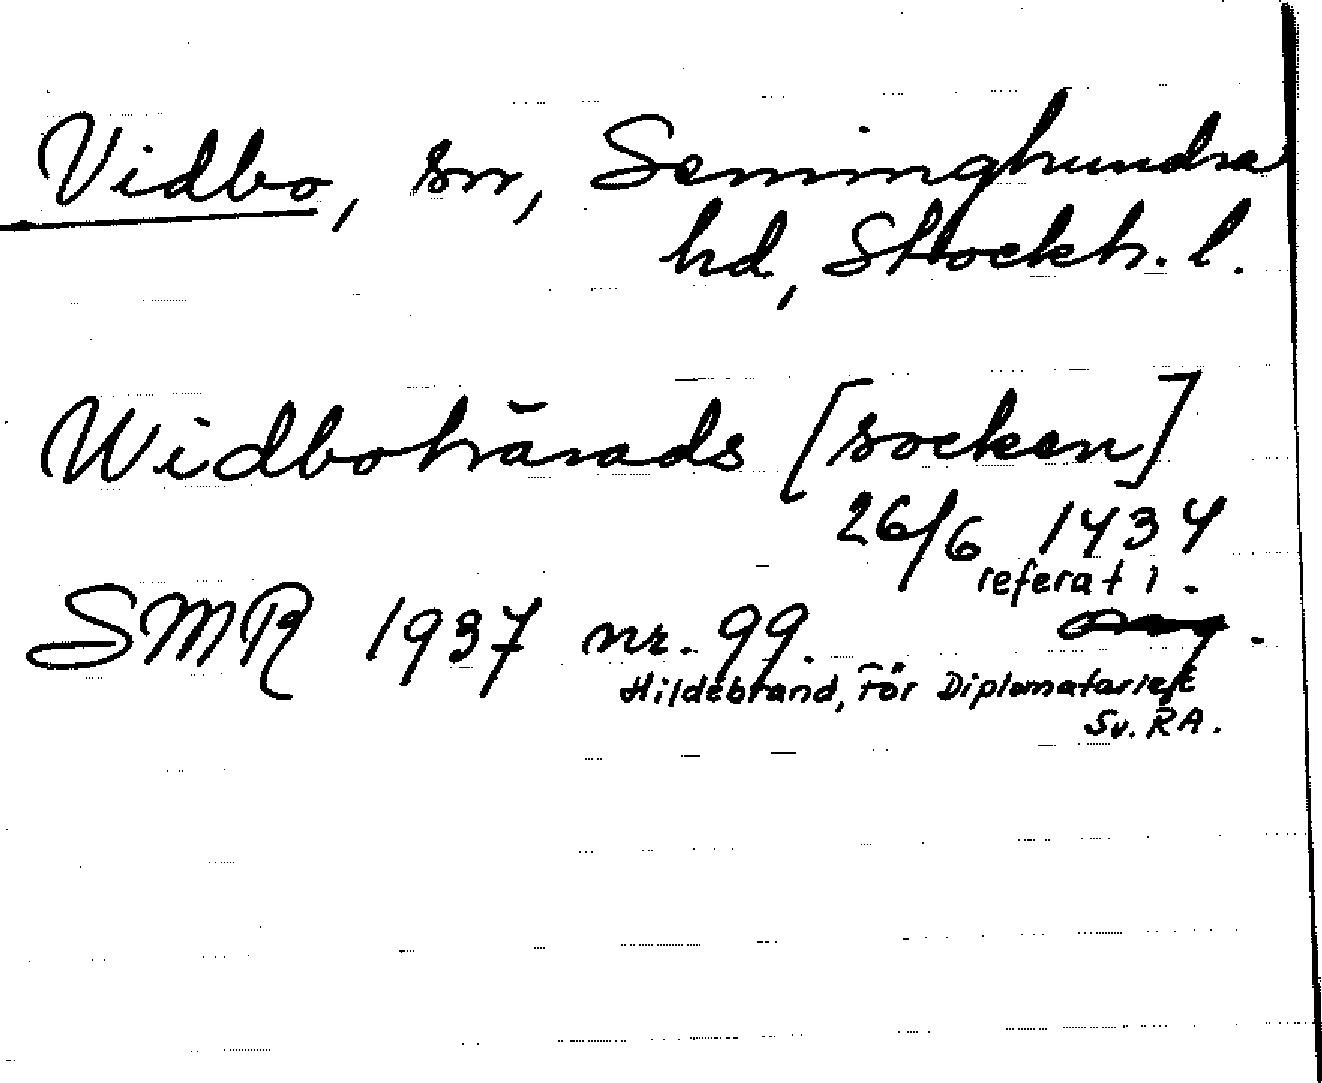 Vidbo, sn, Seminghundra
hd, Stockh. l.
Widbohärads [socken]
26/6 1434
referat i
SMR 1937 nr. 99.
Hildebrand, För Diplomatariet
Sv. RA.